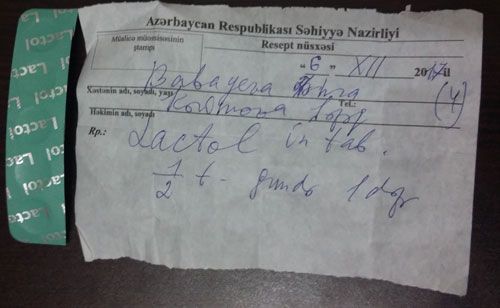 Azərbaycan Respublikası Səhiyyə Nazirliyi
Müalicə müəssisəsinin
ştampı
Resept nüsxəsi
"6" XII 2017 il
Babayeva
Xəstənin adı, soyadı, yaşı
(4)
Kərimova
Tel.:
Həkimin adı, soyadı
Rp.:
Lactol in tab.
1/2 t - gündə 1 dəf
Lactol
Lactol
Lactol
Lactol
Lactol
Lactol